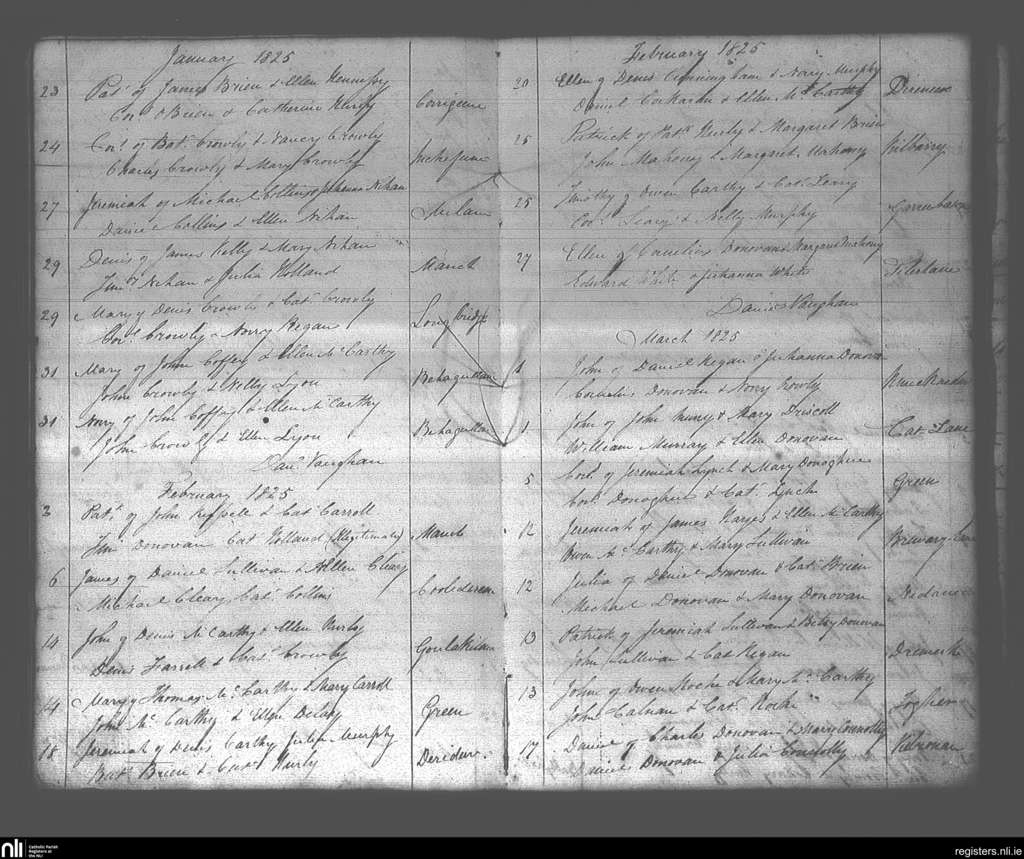 January 1825
23 Patk of James Brien & Ellen Hennessy
Corl OBrien & Catherine Hurly
24 Corl of Bat. Crowly & Nancy Crowly
Charles Crowly & Mary Crowly
27 Jeremiah of Michael Collins & Johanna Nihan
Daniel Collins & Ellen Nihan
29 Denis of James Kelly & Mary Nihan March
Timy Nihan & Julia Holland
29 Mary of Denis Crowly & Cat. Crowly Long bridge
Corl Crowly & Norry Regan
31 Mary of John Coffey & Ellen McCarthy
John Crowly & Nelly Lyon Behagullan
31 Nory of John Coffey & Ellen McCarthy
John Crowly & Ellen Lyon Behagullan
Danl Vaughan
February 1825
3 Patk of John & Cat Carroll
Tim Donovan Cat Holland (Illegitimate)
6 James of Daniel Sullivan & Ellen Cleary
Michael Cleary Cat. Collins
14 John of Denis McCarthy & Ellen Hurly
Denis Farrell & Cat. Crowly
14 Mary of Thomas McCarthy & Mary Carroll
John McCarthy & Ellen Green
18 Jeremiah of Denis Carthy Julia Murphy
Bat. Brien & Cat. Hurly
February 1825
20 Ellen of Denis Cunningham & Norry Murphy
Daniel Corkaran & Ellen McCarthy
25 Patrick of Patk Hurly & Margaret Brien
John Mahony & Margaret Mahony Kilbarry
25 Timothy of Owen Carthy & Cat. Leary
Corl Leary & Nelly Murphy
27 Ellen of Cornelius Donovan & Margaret Mahony
Edward White & Johanna White
Daniel Vaughan
March 1825
1 John of Daniel Regan & Johanna Donovan
Cornelius Donovan & Norry Crowly
1 John of John & Mary Driscoll
William Murray & Ellen Donovan Lane
5 Corl of Jeremiah Lynch & Mary Donoghue
Corl Donoghue & Cat. Lynch Green
12 Jeremiah of James Hayes & Ellen McCarthy
Owen McCarthy & Mary Sullivan Lane
12 Julia of Daniel Donovan & Cat. Brien
Michael Donovan & Mary Donovan
13 Patrick of Jeremiah Sullivan & Betsy Donovan
John Sullivan & Cat Regan
13 John of Owen Roche & Mary McCarthy
John Calnan & Cat. Roche
17 Daniel of Charles Donovan & Mary Connolly
Daniel Donovan & Julia Connolly
nli Catholic Parish Registers at the NLI
registers.nli.ie